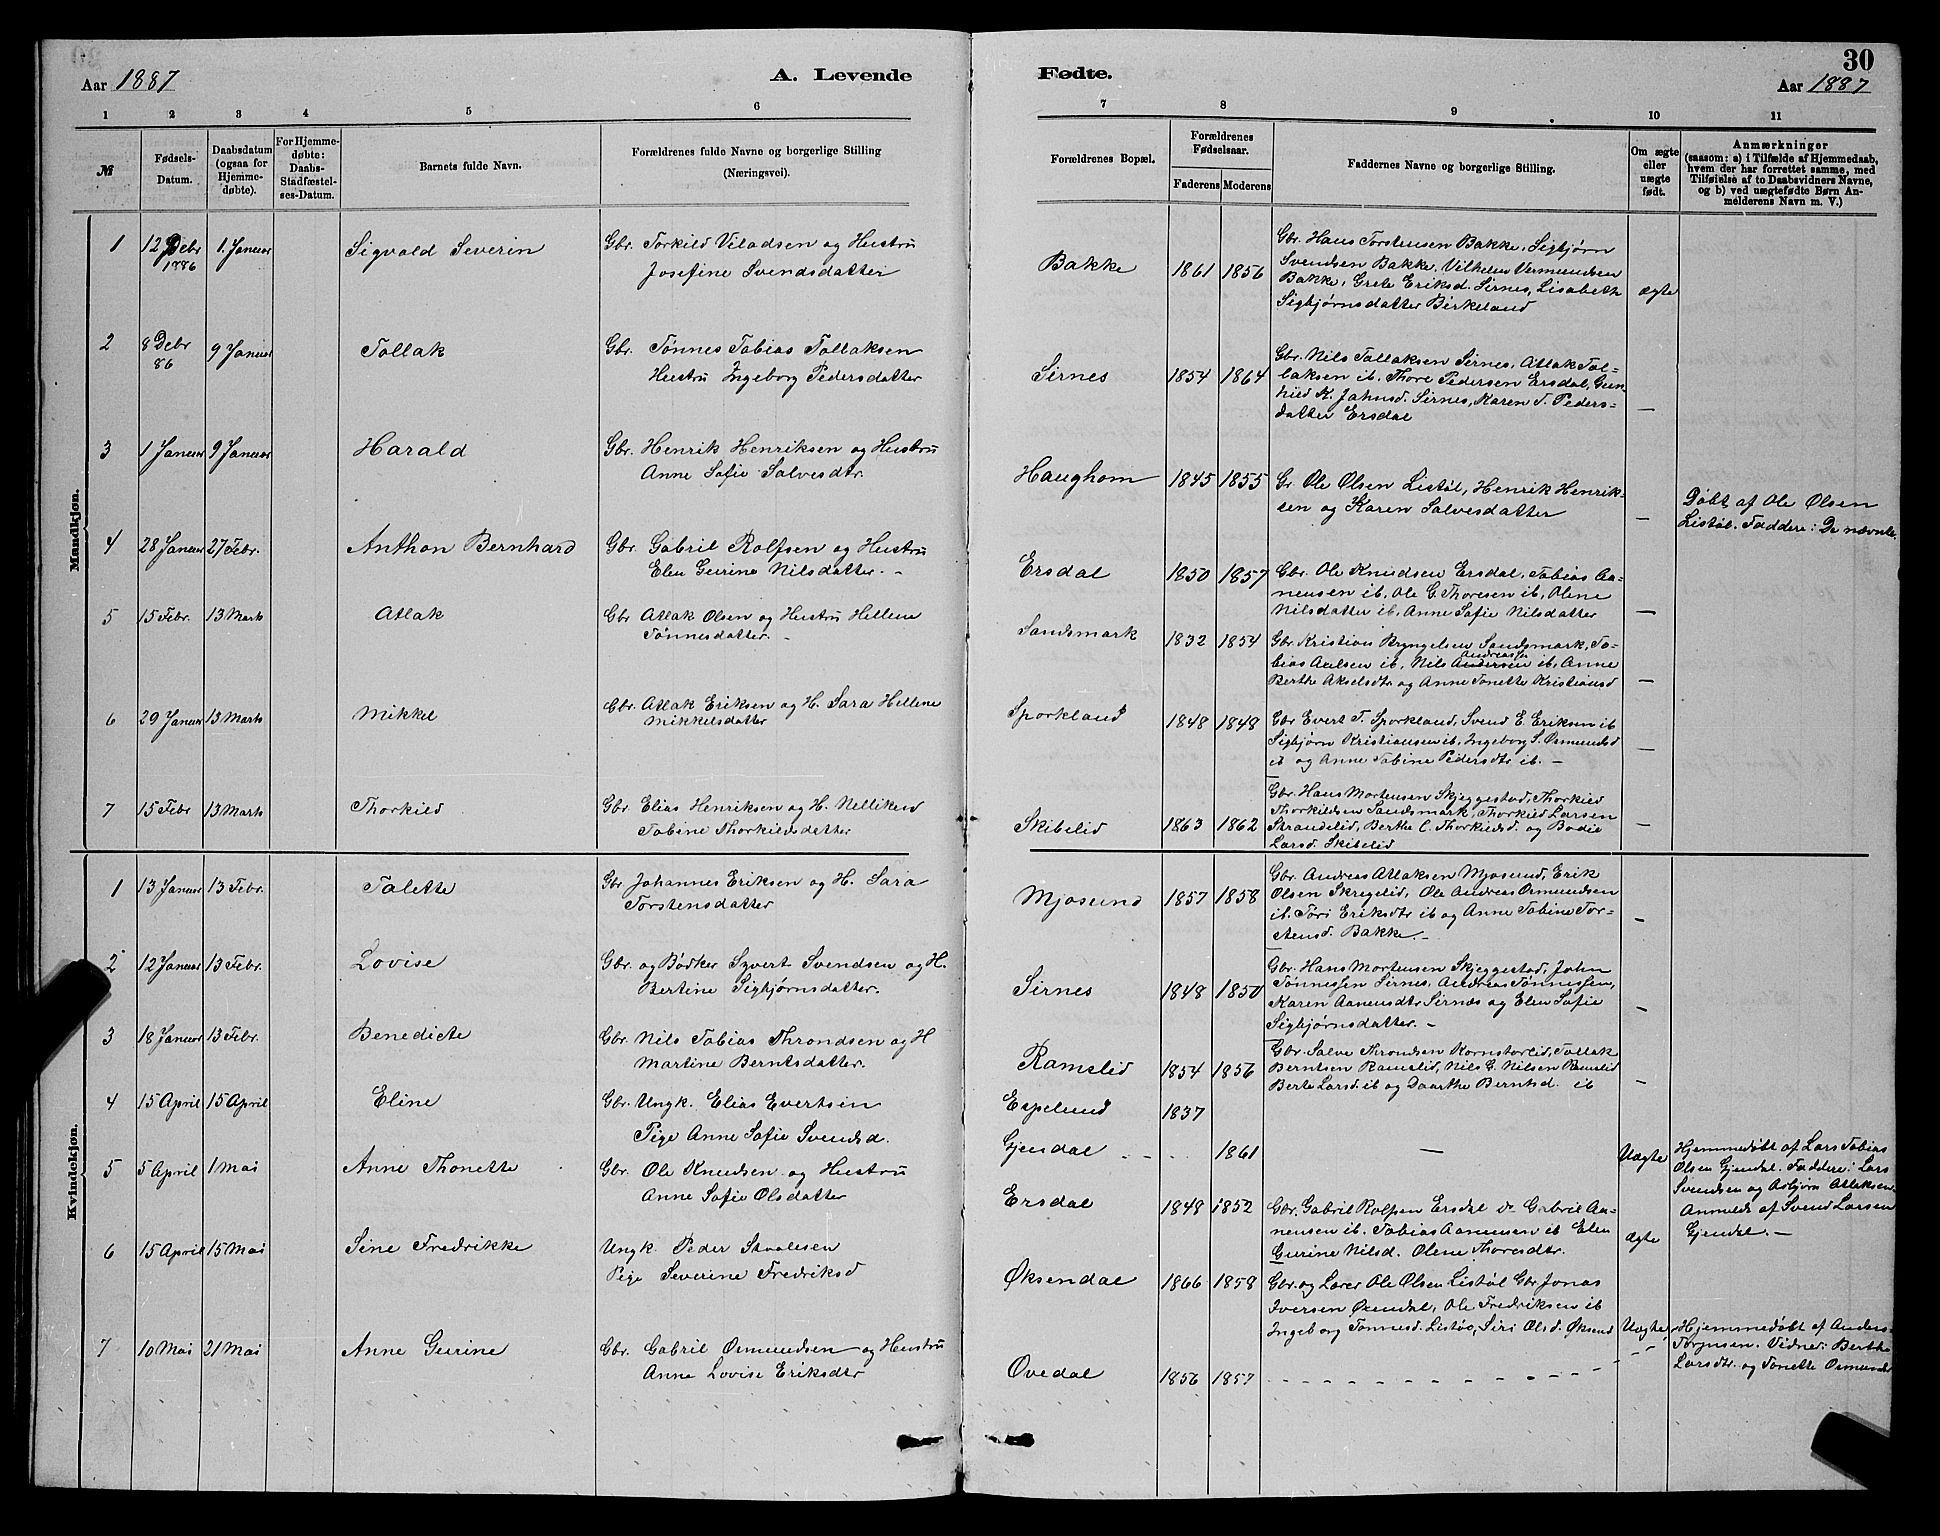 30
Aar 1887
A. Levende
Fødte.
Aar 1887
1 2 3 4 5 6
7 8 9 10 11
№
Fødsels-
Datum.
Daabsdatum
(ogsaa for
Hjemme-
døbte).
For Hjemme-
døbte:
Daabs-
Stadfæstel-
ses-Datum.
Barnets fulde Navn.
Forældrenes fulde Navne og borgerlige Stilling
(Næringsvei).
Forældrenes Bopæl.
Forældrenes
Fødselsaar.
Faderens Moderens
Faddernes Navne og borgerlige Stilling.
Om ægte
eller
uægte
født.
Anmærkninger
(saasom: a) i Tilfælde af Hjemmedaab,
hvem der har forrettet samme, med
Tilføielse af to Daabsvidners Navne,
og b) ved uægtefødte Børn An-
melderens Navn m. V.)
Mandkjøn.
1 12 Debr 1. Januar Sigvald Severin Gbr. Torkild Viladsen og Hustru
1886
Josefine Svendsdatter
Bakke 1861 1856 ægte
Gbr. Hans Torstensen Bakke, Sigbjørn
Svendsen Bakke, Vilhelm Vermundsen
Bakke, Grete Eriksd. Sirnes, Lisabeth
Sigbjørnsdatter Birkeland
2 8 Debr 9 Januar Tollak Gbr. Tønnes Tobias Tollaksen
86
Hustru Ingeborg Pedersdatter
Sirnes 1854 1864 —
Gbr. Nils Tallaksen Sirnes, Atlak Tol-
laksen ib, Thore Pedersen Ersdal, Gun-
hild K. Jahnsd. Sirnes, Karen S. Peders-
datter Ersdal
3 1 Januar 9 Januar Harald Gbr. Henrik Henriksen og Hustru
Anne Sofie Salvesdtr.
Haughom 1845 1855 —
Gr Ole Olsen Listøl, Henrik Henrik-
sen og Karen Salvesdatter
Døbt af Ole Olsen
Listøl. Faddere: De nævnte
4 28 Januar 27 Febr. Anthon Bernhard Gbr. Gabril Rolfsen og Hustru
Elen Gurine Nilsdatter. –
Ersdal 1850 1857 —
Gbr. Ole Knudsen Ersdal, Tobias Aa-
nensen ib, Ole G. Thoresen ib, Olene
Nilsdatter ib, Anne Sofie Nilsdatter
5 15 Febr. 13 Marts Atlak Gbr Atlak Olsen og Hustru Hellene
Tønnesdatter. –
Sandsmark 1832 1854 —
Gbr Kristian Bryngelsen Sandsmark, To-
bias Axelsen ib, Nils Andersen ib, Anne
Andreassen
Berthe Akselsdtr og Anne Tonette Kristiansd
6 29 Januar 13 Marts Mikkel Gbr. Atlak Eriksen og H. Sara Hellene
Mikkelsdatter
Sporkland 1848 1848 —
Gbr Evert T. Sporkland, Svend E. Eriksen ib
Sigbjørn Kristiansen ib, Ingeborg S. Osmundsd
ib og Anne Tobine Pedersdtr ib. –
7 15 Febr 13 Marts Thorkild Gbr Elias Henriksen og H. Nelliken
Tobine Thorkildsdatter
Skibelid 1863 1862 —
Gbr. Hans Mortensen Skjeggestad, Thorkild
Thorkildsen Sandsmark, Thorkild Larsen
Strandelid, Berthe C. Thorkildsd. og Bodil
Larsd. Skibelid
Kvindekjøn.
1 13 Januar 13 Febr. Talette Gbr Johannes Eriksen og H. Sara
Torstensdatter
Mjosund 1857 1858 —
Gbr. Andreas Atlaksen Mjosund, Erik
Olsen Skregelid, Ole Andreas Osmundsen
ib. Tori Eriksdtr ib og Anne Tobine Tor-
stensd. Bakke. –
2 12 Januar 13 Febr. Lovise Gbr. og Bødker Syvert Svendsen og H.
Bertine Sigbjørnsdatter.
Sirnes 1848 1850 —
Gbr. Hans Mortensen Skjeggestad, John
Tønnessen Sirnes, Andreas Tønnessen,
Karen Aanensdtr Sirnæs og Elen Sofie
Sigbjørnsdatter. –
3 18 Januar 13 Febr. Benedicte Gbr. Nils Tobias Throndsen og H
Martine Berntsdatter.
Ramslid 1854 1856 —
Gbr. Salve Throndsen Kornstorlid, Tollak
Berntsen Ramslid, Nils G. Nilsen Ramslid
Berte Larsd. ib og Daarthe Berntsd. ib
4 15 April 15 April Eline Gbr. Ungk. Elias Evertsen
Pige Anne Sofie Svendsd.
Espelund 1837
Gjendal 1861 — Uægte
Hjemmedøbt af Lars Tobias
Olsen Gjendal. Faddere: Lars
Svendsen og Asbjørn Atlaksen.
Anmeldt af Svend Larsen
Gjendal. –
5 5 April 1 Mai Anne Thonette Gbr. Ole Knudsen og Hustru
Anne Sofie Olsdatter
Ersdal 1848 1852 Ægte
Gbr. Gabril Rolfsen Ersdal Gabril Aa-
nensen ib. Tobias Aanensen ib Elen
Gurine Nilsd. Olene Thoresdtr.
6 15 April 15 Mai Sine Fredrikke Ungk. Peder Staalesen
Pige Severine Fredriksd
Øksendal 1866 1858 Uægte
Gbr. og Lærer Ole Olsen Listøl Gbr Jonas
Iversen Øxendal, Ole Fredriksen ib
Ingeborg Tønnesd. Listøl, Siri Olsd. Øksend
7 10 Mai 21 Mai Anne Gurine Gbr. Gabril Osmundsen og Hustru
Anne Lovise Eriksdtr
Ovedal 1856 1857
Hjemmedøbt af Anders
Torjusen. Vidner: Berthe
Larsdtr. og Tonette Osmundsdtr